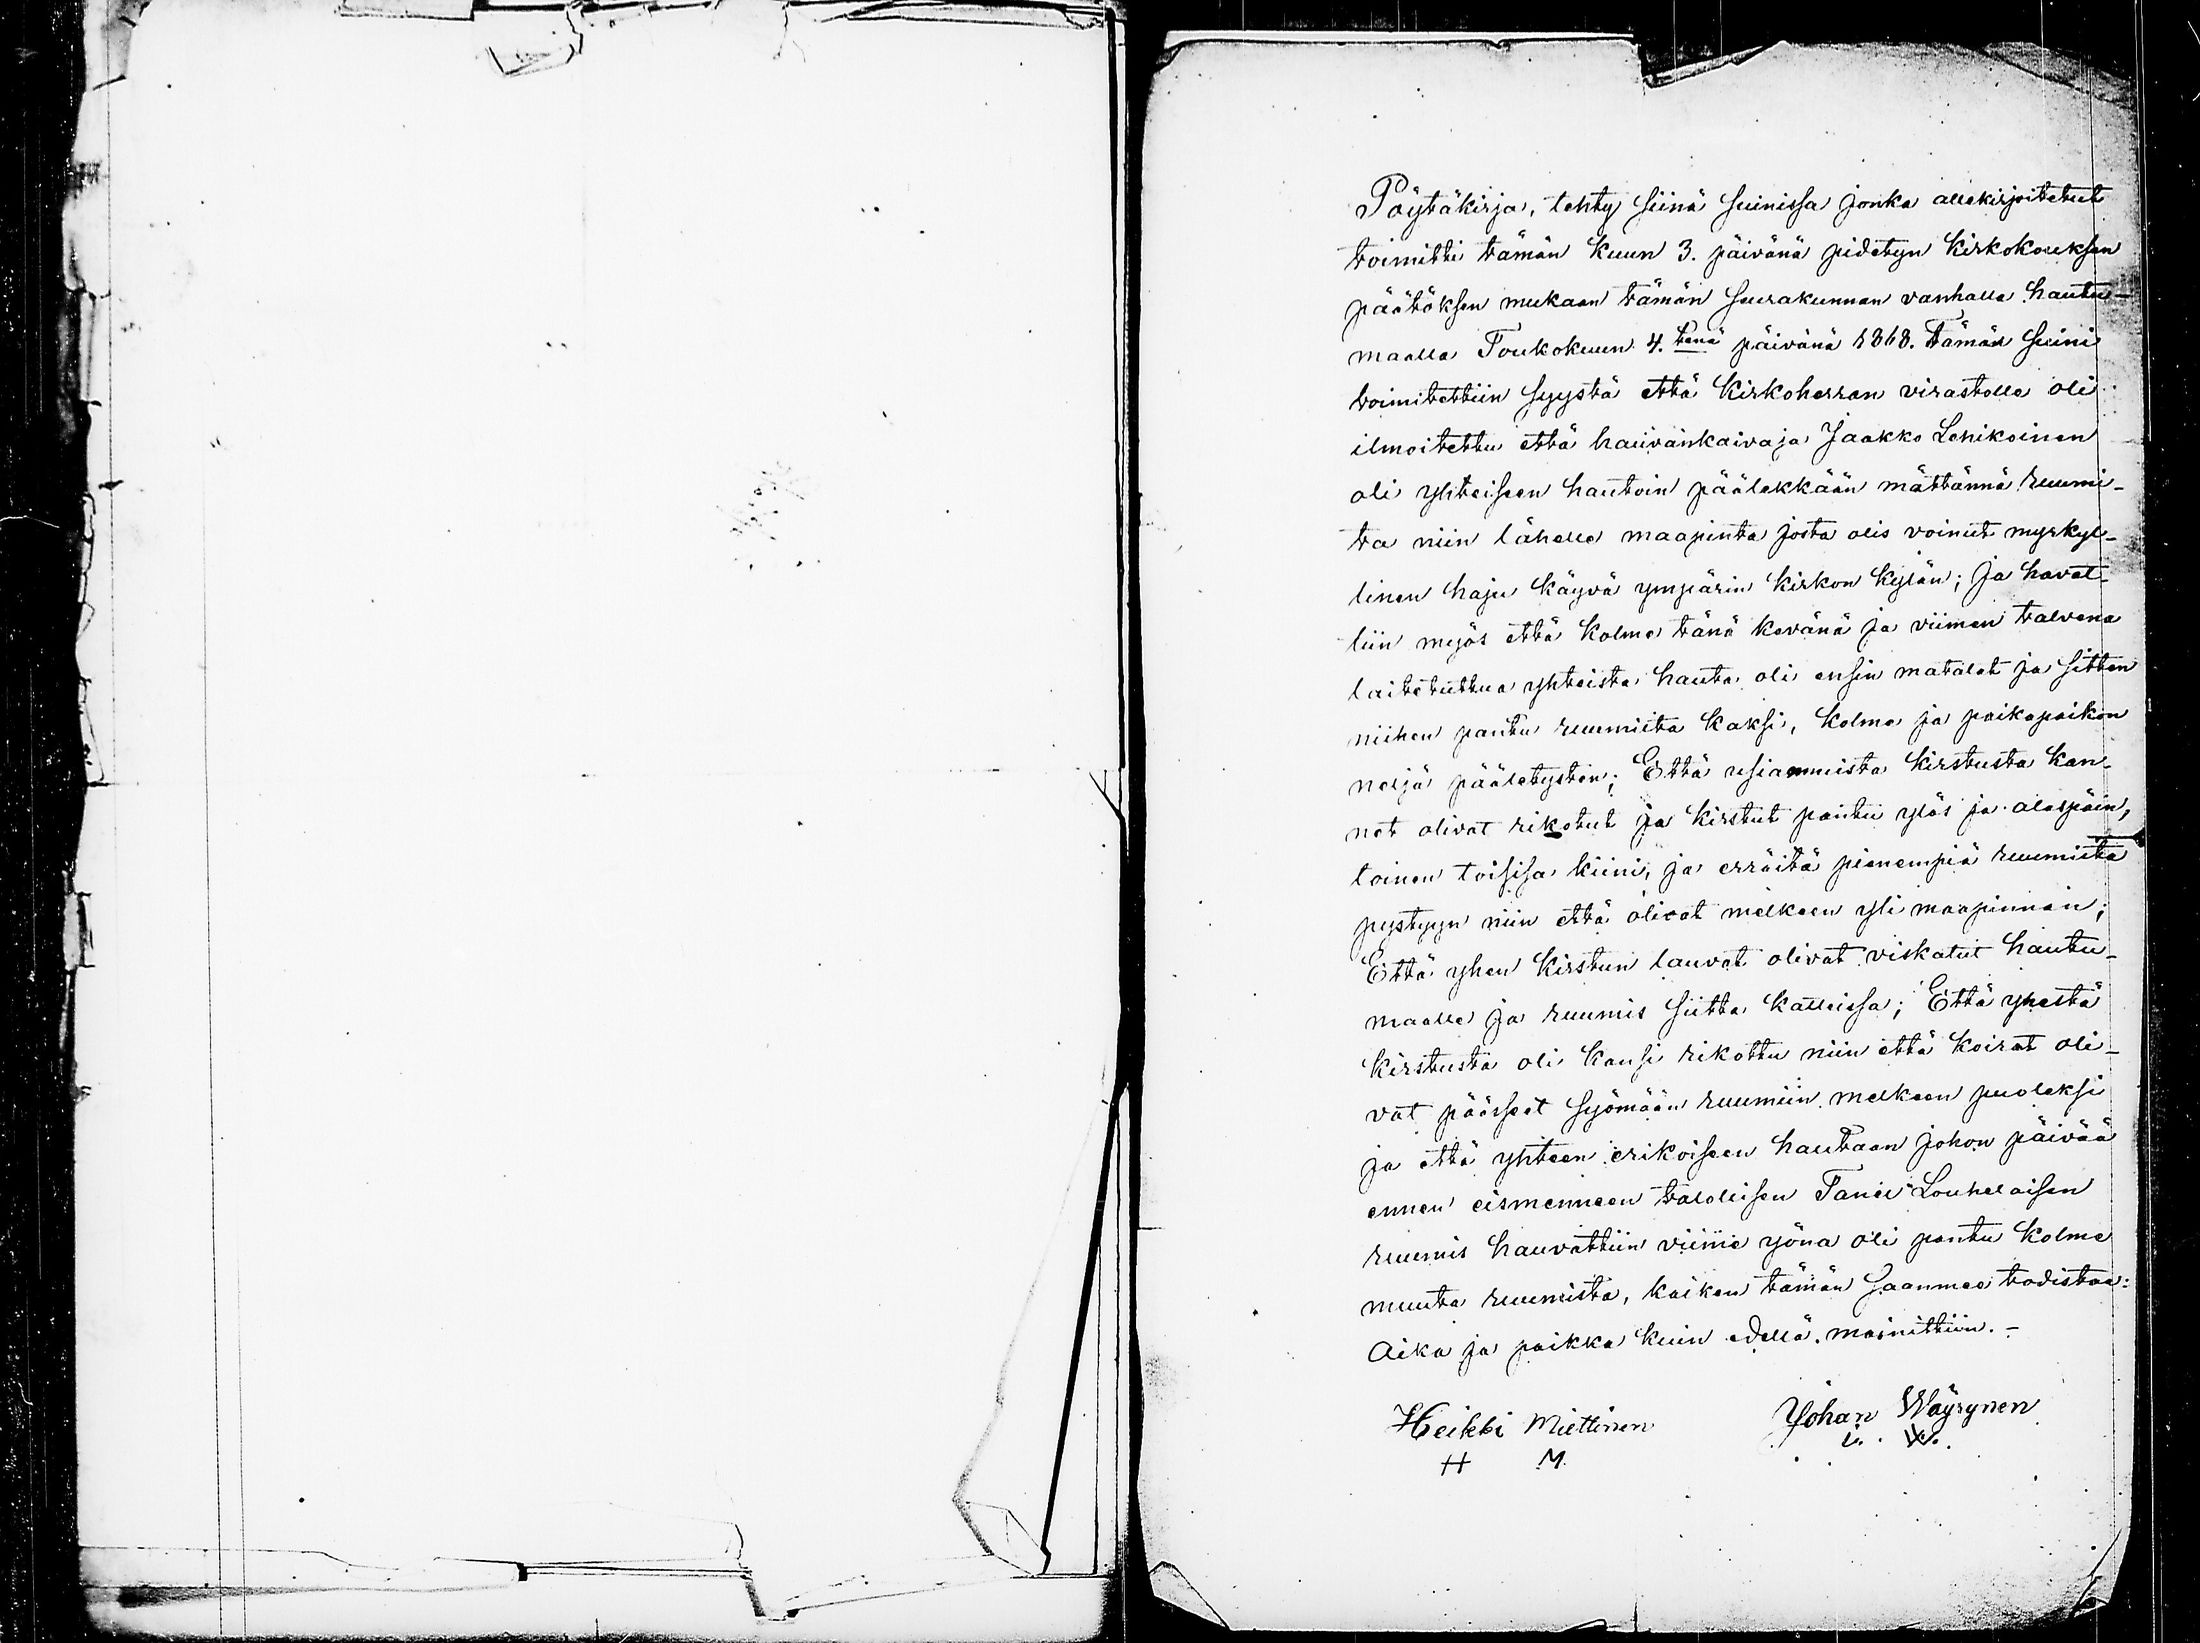 Pöytäkirja, tehty siinä suinissa jonka allekirjoitetut
toimitti tämän kuun 3. päivänä pidetyn kirkokouksen
päätöksen mukaan tämän seurakunnan vanhalla hautu-
maalla Toukokuun 4. tenä päivänä 1868. Tämän suini
toimitettiin syystä että Kirkoherran virastolle oli
ilmoitettu että hauvankaivaja Jaakko Lenikoinen
oli yhteiseen hautoin päälekkään mättännä ruumi-
ta niin lähelle maapinta josta olis voinut myrkyl-
linen haju käyvä ympärin kirkon kylän; ja havat-
tiin myös että kolme tänä kevänä ja viimen talvena
laitetuttua yhteista hauta oli ensin matalat ja sitten
niihen pantu ruumiita kaksi, kolme ja paikapaikon
neljä pääletysten; Että usiammista kirstusta kan-
net olivat rikotut ja kirstut pantu ylös ja alaspäin,
toinen toisisa kiini, ja erräitä pienempiä ruumiita
pystyyn niin että olivat melkeen yli maapinnan;
Että yhen kirstun lauvat olivat viskatut hautu-
maalle ja ruumis siitta kalleissa; Että yhestä
kirstusta oli kansi rikottu niin että koirat oli-
vat päässeet syömään ruumiin melkeen puoleksi
ja että yhteen erikoiseen hautaan johon päivää
ennen eismenneen talolisen Taniel Louhelaisen
ruumis hauvattiin viime yönä oli pantu kolme
muuta ruumista, kaiken tämän saamme todistaa:
Aika ja paikka kuin edellä mainittiin. -
Heikki Miettinen Johan Wäyrynen
H M. W.